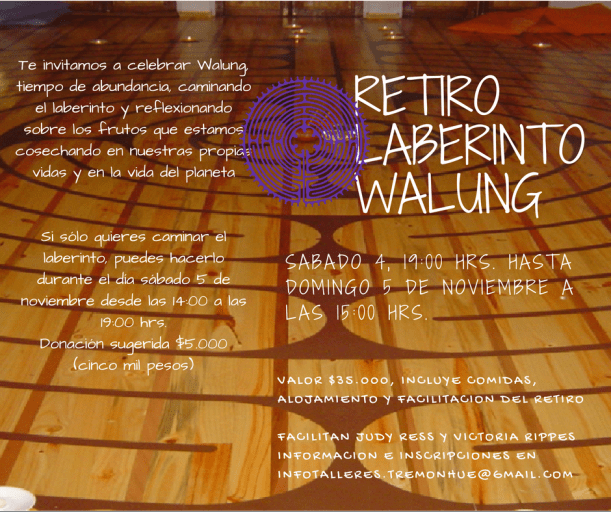 Te invitamos a celebrar Walung,
tiempo de abundancia, caminando
el laberinto y reflexionando
sobre los frutos que estamos
cosechando en nuestras propias
vidas y en la vida del planeta
Si sólo quieres caminar el
laberinto, puedes hacerlo
durante el día sábado 5 de
noviembre desde las 14:00 a las
19:00 hrs.
Donación sugerida $5.000
(cinco mil pesos)
RETIRO
LABERINTO
WALUNG
SABADO 4, 19:00 HRS. HASTA
DOMINGO 5 DE NOVIEMBRE A
LAS 15:00 HRS.
VALOR $35.000, INCLUYE COMIDAS,
ALOJAMIENTO Y FACILITACION DEL RETIRO
FACILITAN JUDY RESS Y VICTORIA RIPPES
INFORMACION E INSCRIPCIONES EN
INFOTALLERES.TREMONHUE@GMAIL.COM